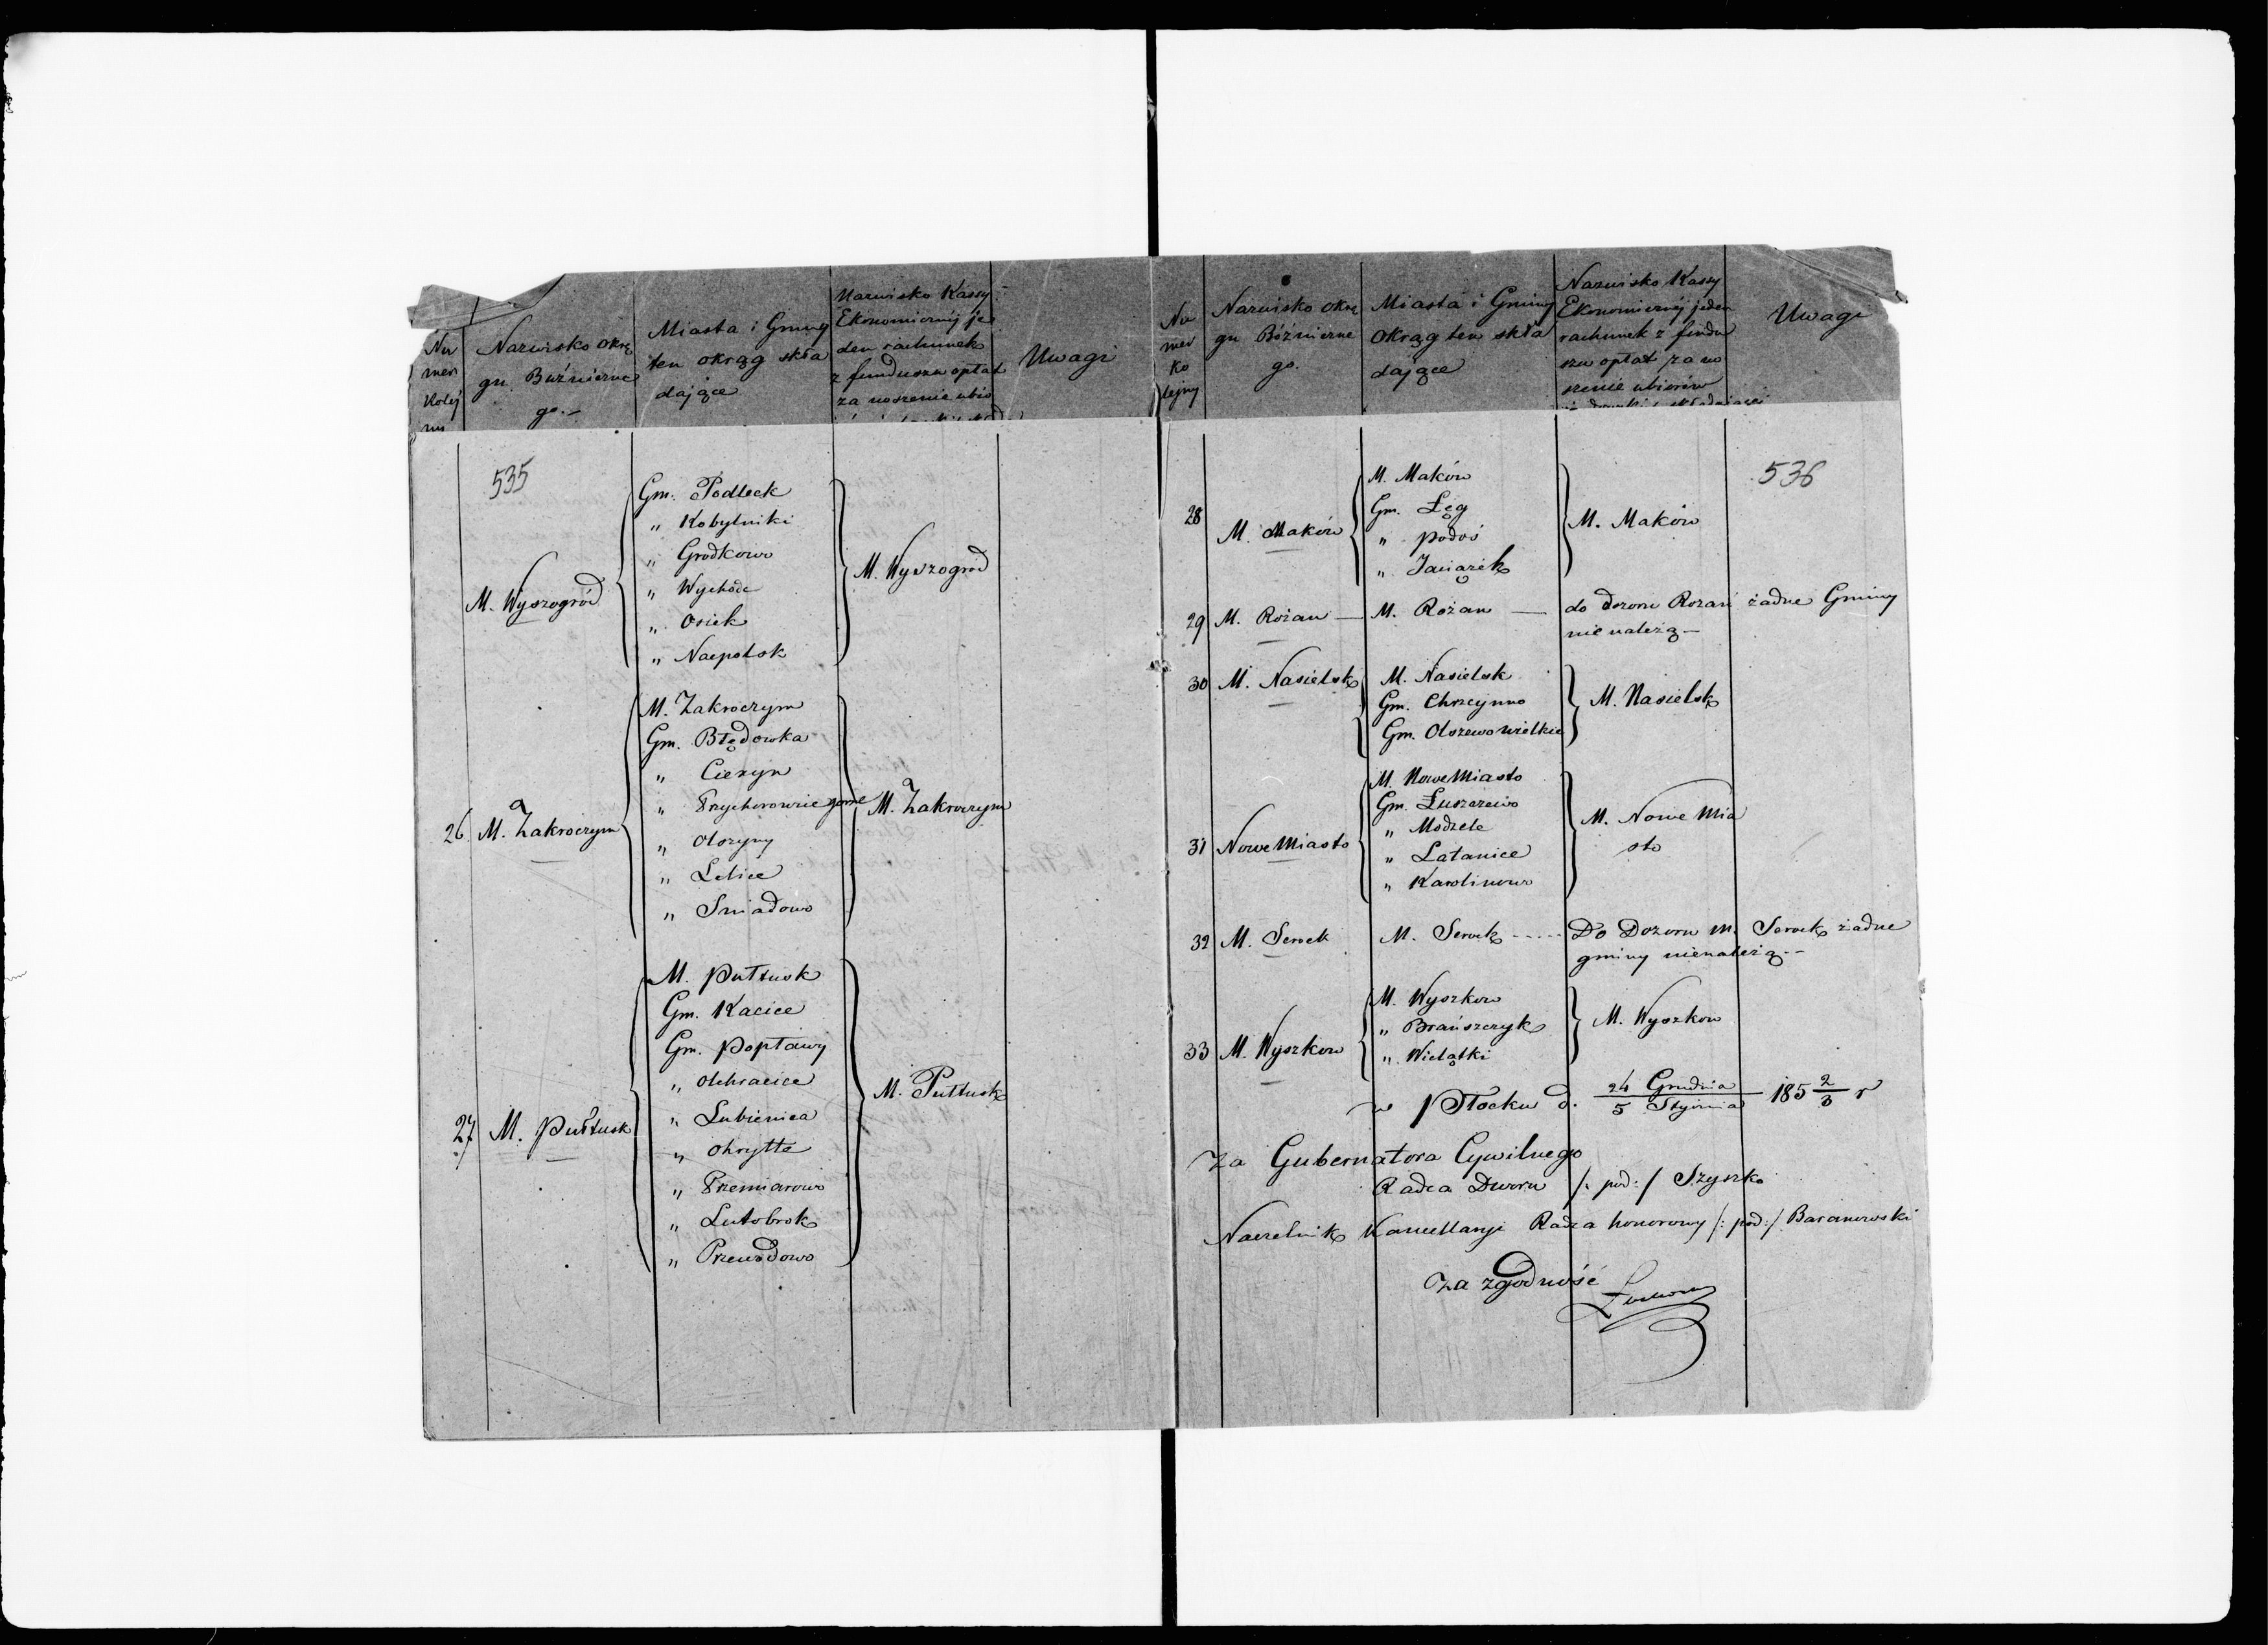 Nu
mer
Koléj
ny
Nazwisko okrę
gu Bóźniczne
go.-
Miasta i Gminy
ten okrąg skła
dające
Nazwisko Kassy
Ekonomicznéj je
den rachunek
z funduszu opłat
za noszenie ubio
Uwagi
535
M. Wyszogród
Gm. Podleck
„ Kobylniki
„ Grodkowo
„ Wychodc
„ Osiek
„ Nacpolsk
M. Wyszogród
26 M. Zakroczym
M. Zakroczym
Gm. Błędowka
„ Cieksyn
„ Przyborowice gorne
„ Olszyny
„ Lelice
„ Sniadowo
M. Zakroczym
27 M. Pułtusk
M. Pułtusk
Gm. Kacice
Gm. Popławy
„ Obracice
„ Lubienica
„ Chrytte
„ Przemiarowo
„ Lutobrok
„ Przewodowo
M. Pułtusk
Nu
mer
Ko
lejny
Nazwisko okrę
gu Bóźniczne
go.
Miasta i Gminy
Okrąg ten skła
dające
Nazwisko Kassy
Ekonomicznéj jeden
rachunek z fundu
szu opłat za no
szenie ubiorów
Uwagi
536
28 M. Maków
M. Maków
Gm. Łęg
„ Podoś
„ Janiążek
M. Maków
29 M. Rożan — M. Rożan — do dozoru Rożan żadne Gminy
nie należą —
30 M. Nasielsk
M. Nasielsk
Gm. Chrzcynno
Gm. Olszewo wielkie
M. Nasielsk
31 Nowe Miasto
M. Nowe Miasto
Gm. Łuszczewo
„ Modzele
„ Latanice
„ Karolinowo
M. Nowe Mia
sto
32 M. Serock M. Serock ..... Do Dozoru M. Serock żadne
gminy nienależą.-
33 M. Wyszkow
M. Wyszkow
„ Brańszczyk
„ Wielątki
M. Wyszkow
w Płocku d. 24 Grudnia / 5 Stycznia 185 2/3 r
Za Gubernatora Cywilnego
Radca Dworu /: pod: / Szyszko
Naczelnik Kancellaryi Radca honorowy /: pod: / Baranowski
Za zgodność